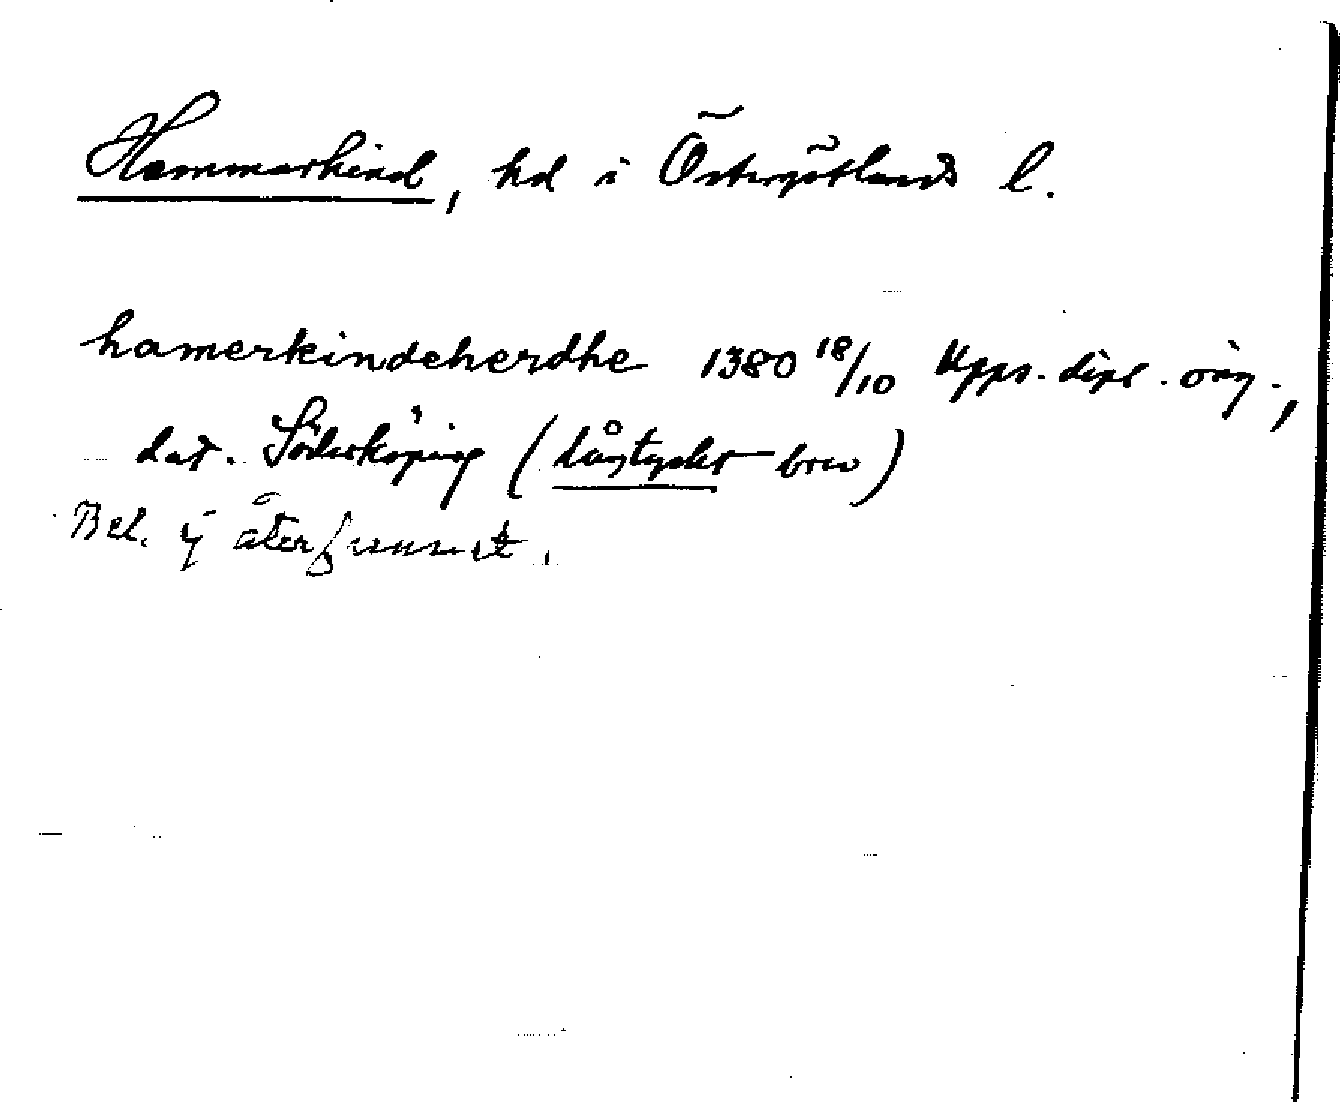 Hammarkind, hd i Östergötlands l.
hamerkindeherdhe 1380 18/10 Upps. dipl. orig.,
dat. Söderköping (lågtyskt brev)
Bel. ej återfunnet.